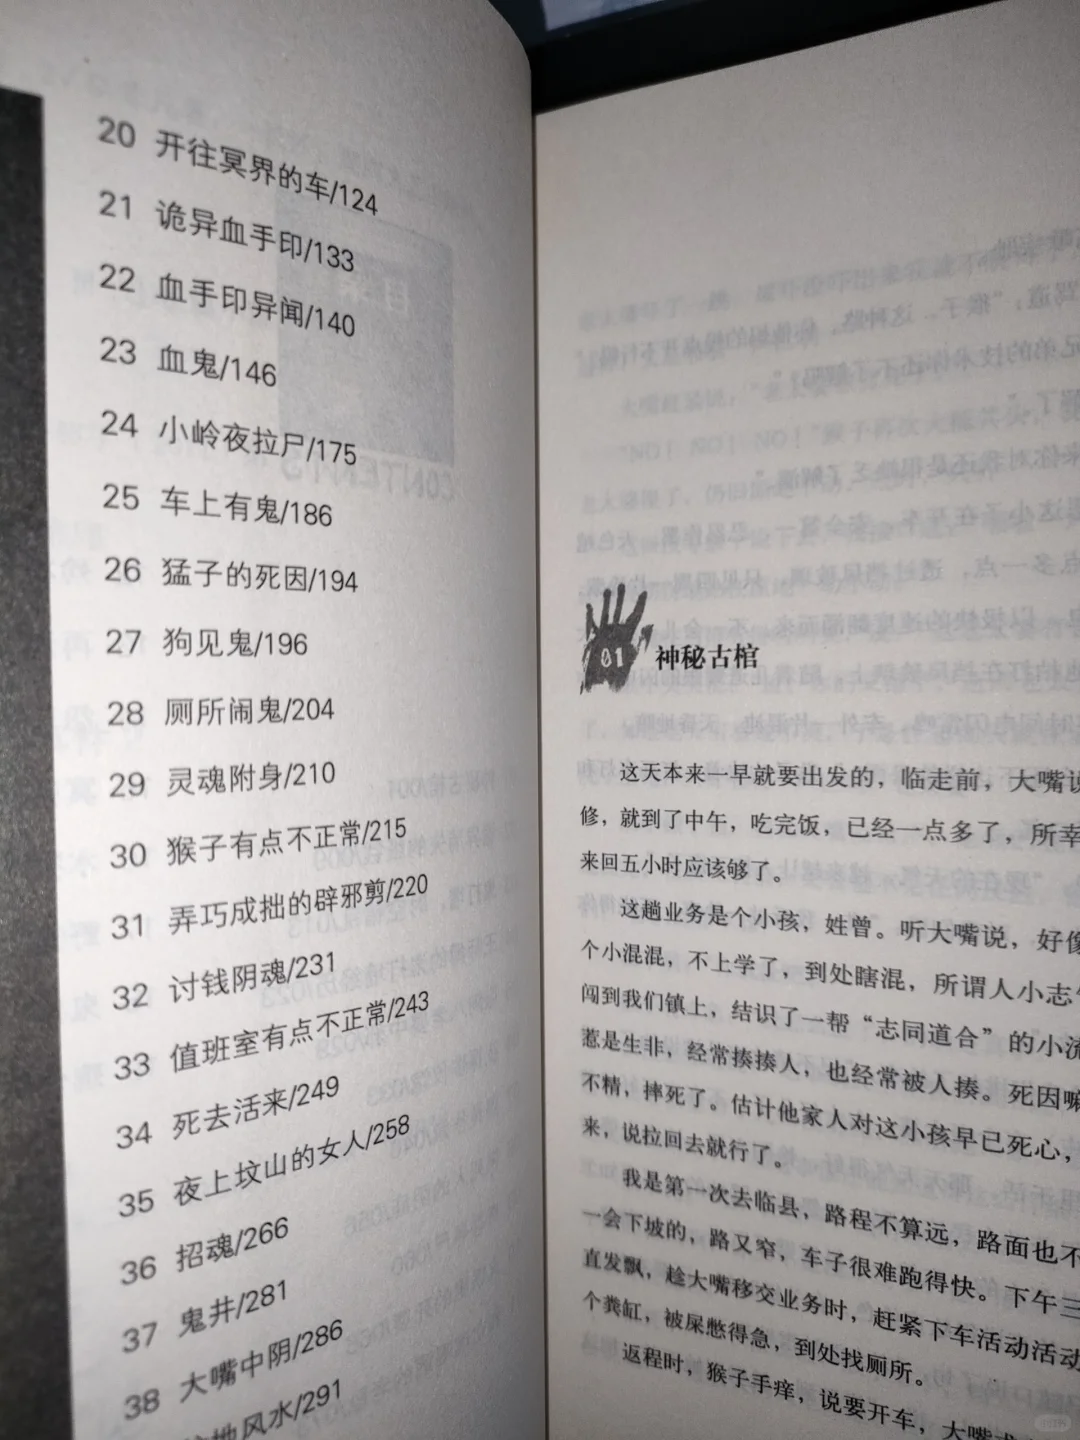 20 开往冥界的车/124
21 诡异血手印/133
22 血手印异闻/140
23 血鬼/146
24 小岭夜拉尸/175
25 车上有鬼/186
26 猛子的死因/194
27 狗见鬼/196
28 厕所闹鬼/204
29 灵魂附身/210
30 猴子有点不正常/215
31 弄巧成拙的辟邪剪/220
32 讨钱阴魂/231
33 值班室有点不正常/243
34 死去活来/249
35 夜上坟山的女人/258
36 招魂/266
37 鬼井/281
38 大嘴中阴/286
地风水/291
01 神秘古棺
这天本来一早就要出发的，临走前，大嘴说
修，就到了中午，吃完饭，已经一点多了，所幸
来回五小时应该够了。
这趟业务是个小孩，姓曾。听大嘴说，好像
个小混混，不上学了，到处瞎混，所谓人小志
闯到我们镇上，结识了一帮“志同道合”的小流
惹是生非，经常揍揍人，也经常被人揍。死因嘛
不精，摔死了。估计他家人对这小孩早已死心，
来，说拉回去就行了。
我是第一次去临县，路程不算远，路面也不
一会下坡的，路又窄，车子很难跑得快。下午三
直发飘，趁大嘴移交业务时，赶紧下车活动活动
个粪缸，被屎憋得急，到处找厕所。
返程时，猴子手痒，说要开车，大嘴